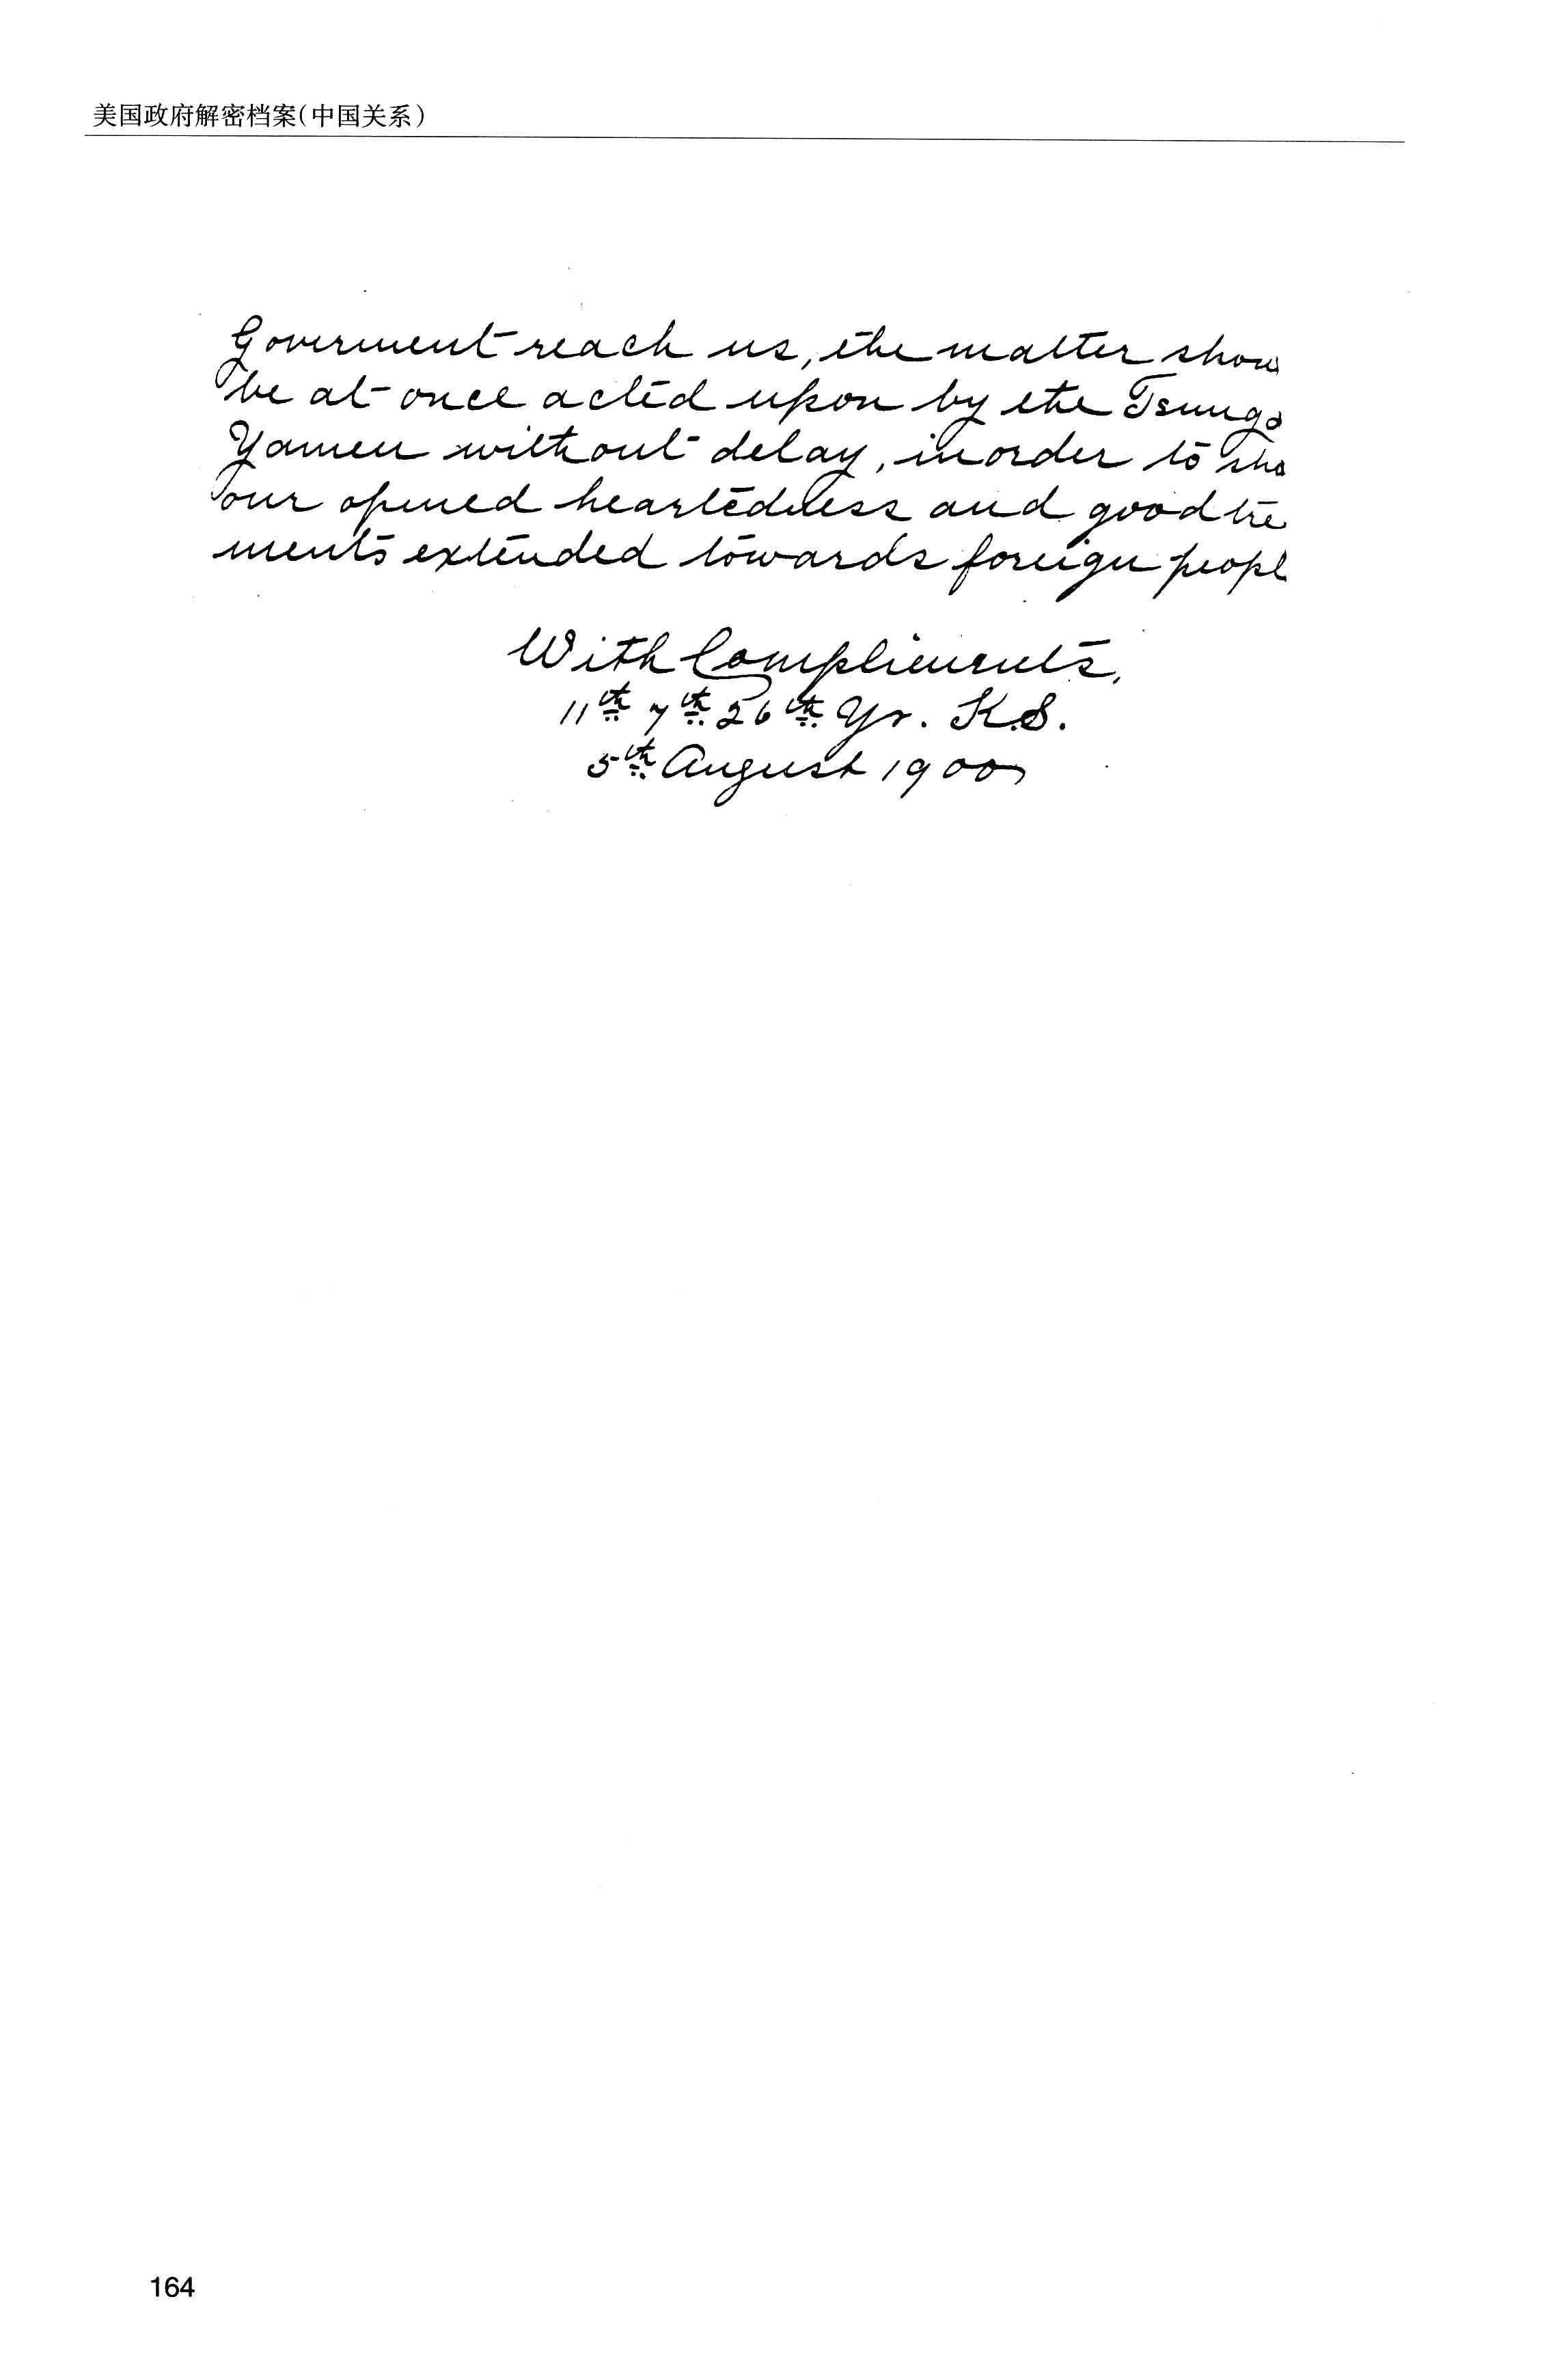 美国政府解密档案(中国关系)
Goverment reach us, the matter shou
be at once acted upon by the Tsungs
Yamen without delay, inorder to sho
our opened heartedness and good tre
ments extended towards foreign peopl
With Compliments,
11th 7th 26th Yr. K.S.
5th August 1900
164